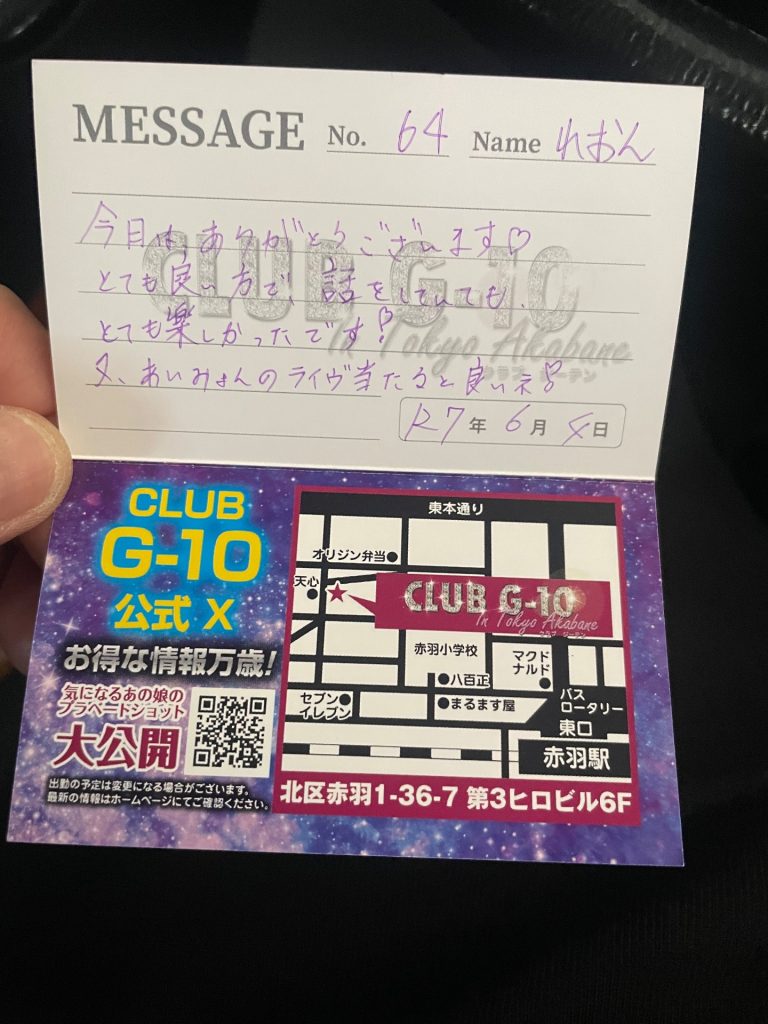 MESSAGE No. 64 Name れおん
今日は、ありがとうございます♡
とても良い方で、話をしていても、
とても楽しかったです!
又、あいみょんのライヴ当たると良いネ
R7年 6月 4日
CLUB G-10
In Tokyo Akabane
クラブ ジーテン
CLUB
G-10
公式 X
お得な情報万歳!
気になるあの娘の
プラベードショット
大公開
出勤の予定は変更になる場合がございます。
最新の情報はホームページにてご確認ください。
東本通り
オリジン弁当
天心
CLUB G-10
In Tokyo Akabane
クラブ ジーテン
赤羽小学校
マクド
ナルド
八百正
セブン
イレブン
まるます屋
バス
ロータリー
東口
赤羽駅
北区赤羽1-36-7 第3ヒロビル6F